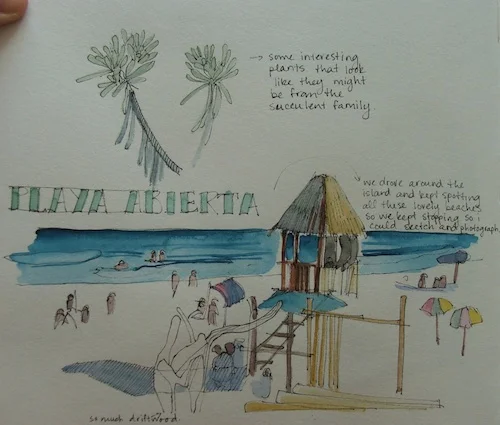 some interesting
plants that look
like they might
be from the
succulent family.
PLAYA ABIERTA
we drove around the
island and kept spotting
all these lovely beaches
so we kept stopping so i
could sketch and photograph
so much driftwood.